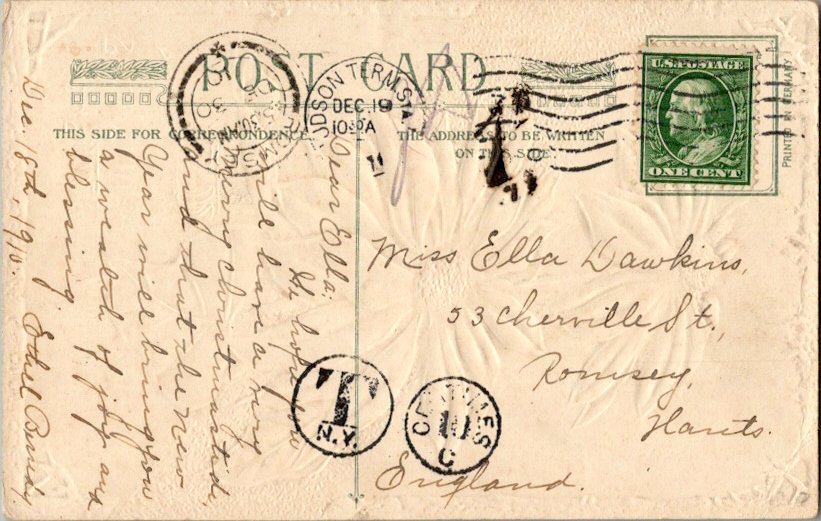 POST CARD
THIS SIDE FOR CORRESPONDENCE
THE ADDRESS TO BE WRITTEN
ON THIS SIDE
PRINTED IN GERMANY
U.S. POSTAGE
ONE CENT
HUDSON TERM. STA.
DEC 19
10 30 A
T
N.Y.
CENTIMES
10
C
Dec. 18th, 1910.
Dear Ella:
We hope you
will have a very
Merry Christmastide,
and that the New
Year will bring you
a wealth of joy and
blessing.
Ethel
Miss Ella Dawkins,
53 Cherville St.,
Romsey,
Hants.
England.